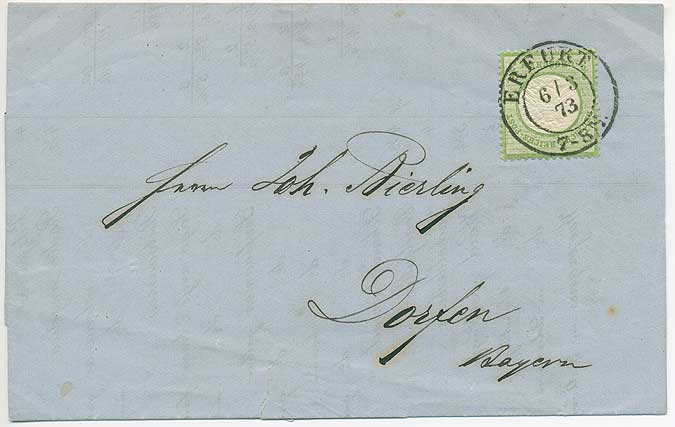 ERFURT
6/3
73
7-8N.
Herrn Joh. Bierling
Dorfen
Bayern